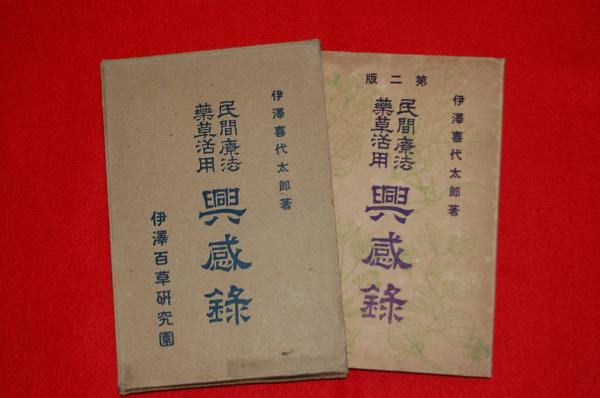 伊澤喜代太郎著
民間療法
藥草活用
興感錄
伊澤百草研究園
第二版
伊澤喜代太郎著
民間療法
藥草活用
興感錄